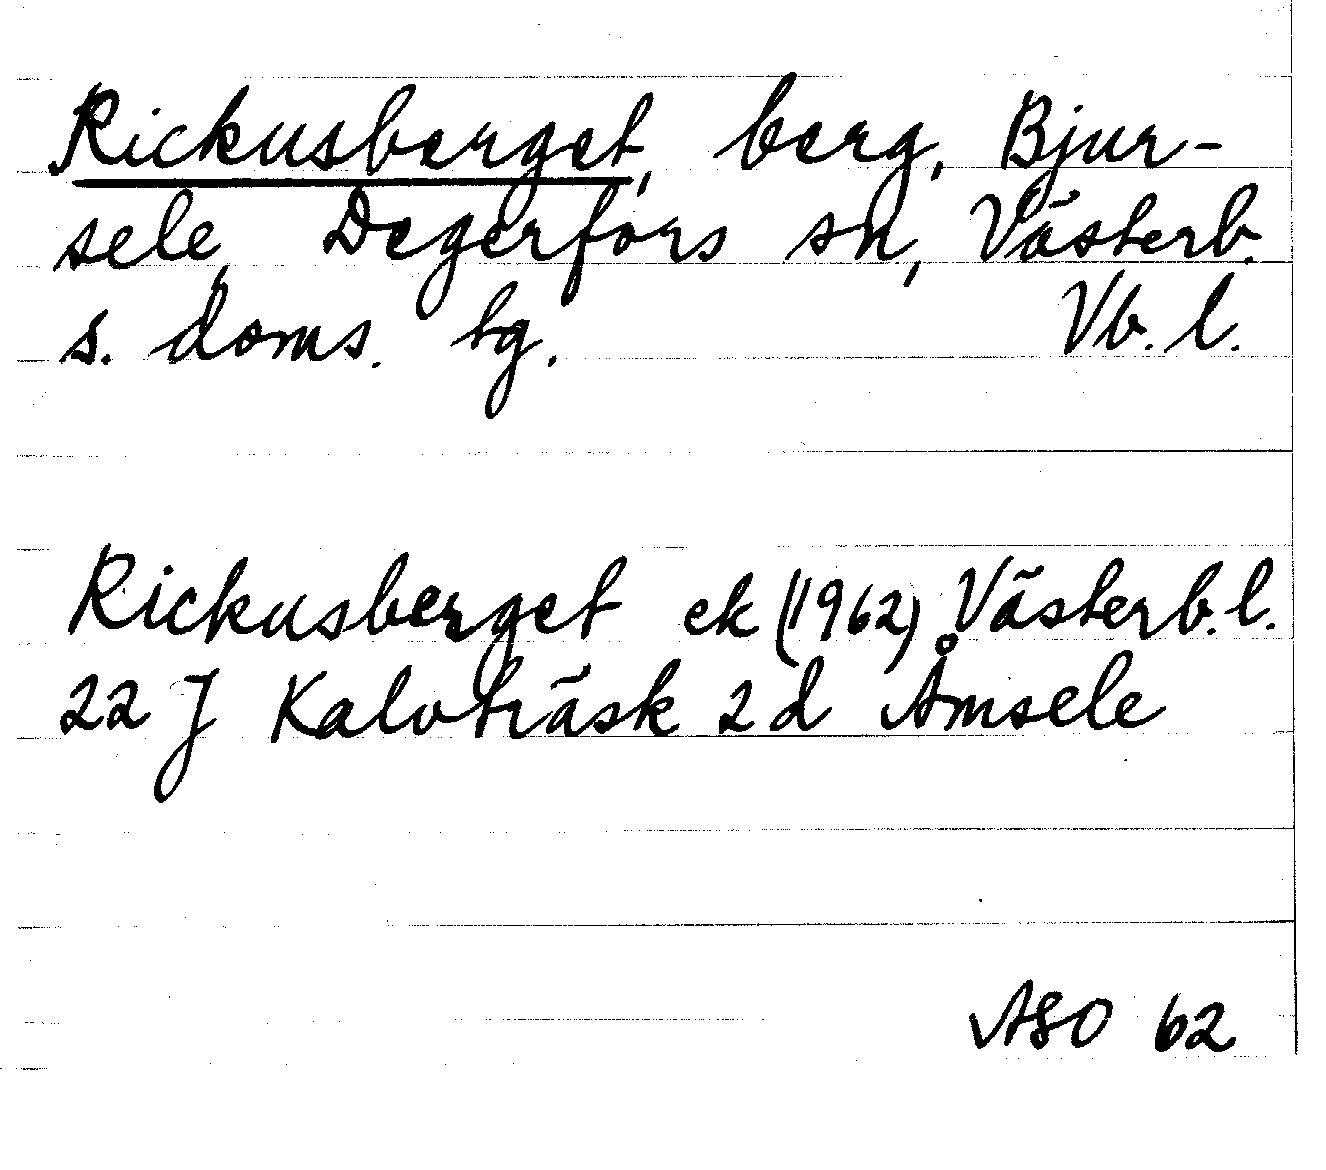 Rickusberget, berg, Bjur-
sele, Degerfors sn, Västerb.
s. doms. tg. Vb. l.
Rickusberget ek (1962) Västerb. l.
22 J Kalvträsk 2d Åmsele
ASO 62